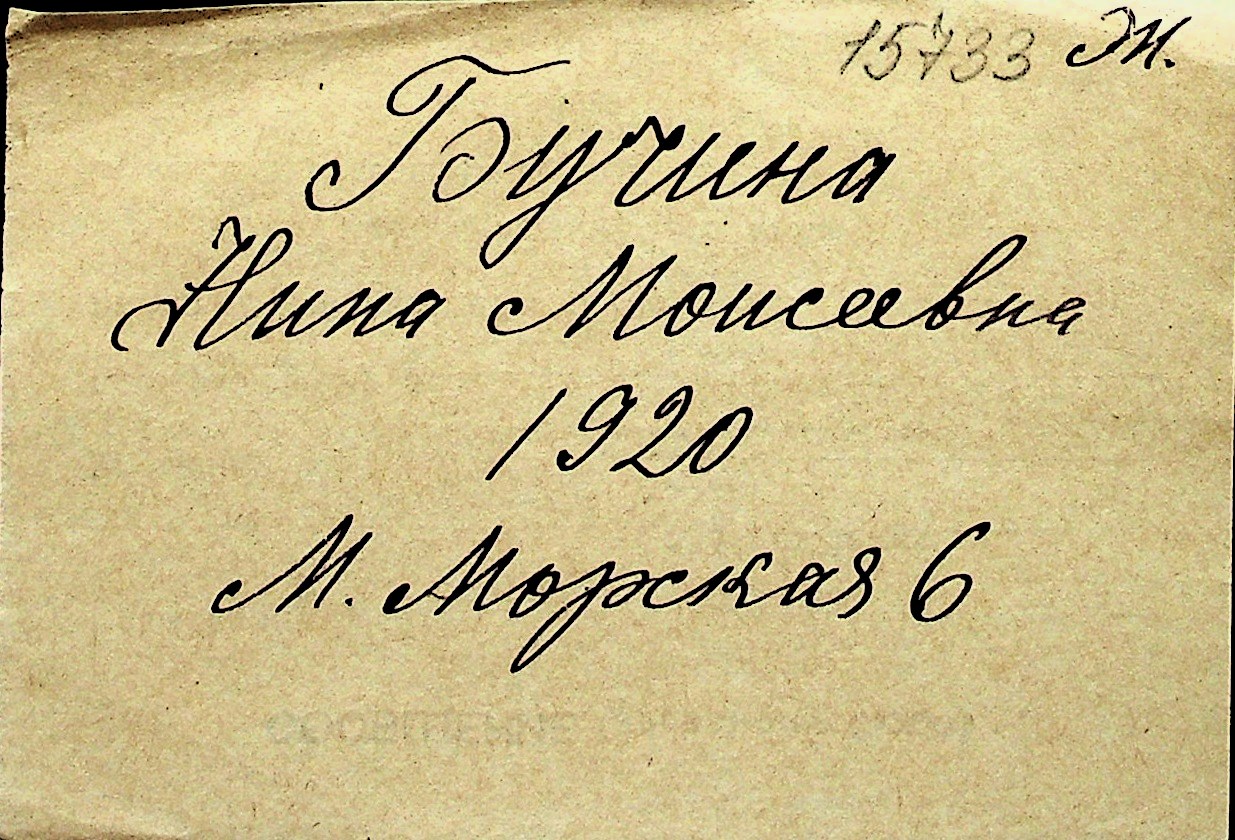 15733 Ж.
Бучина
Нина Моисеевна
1920
М. Морская 6